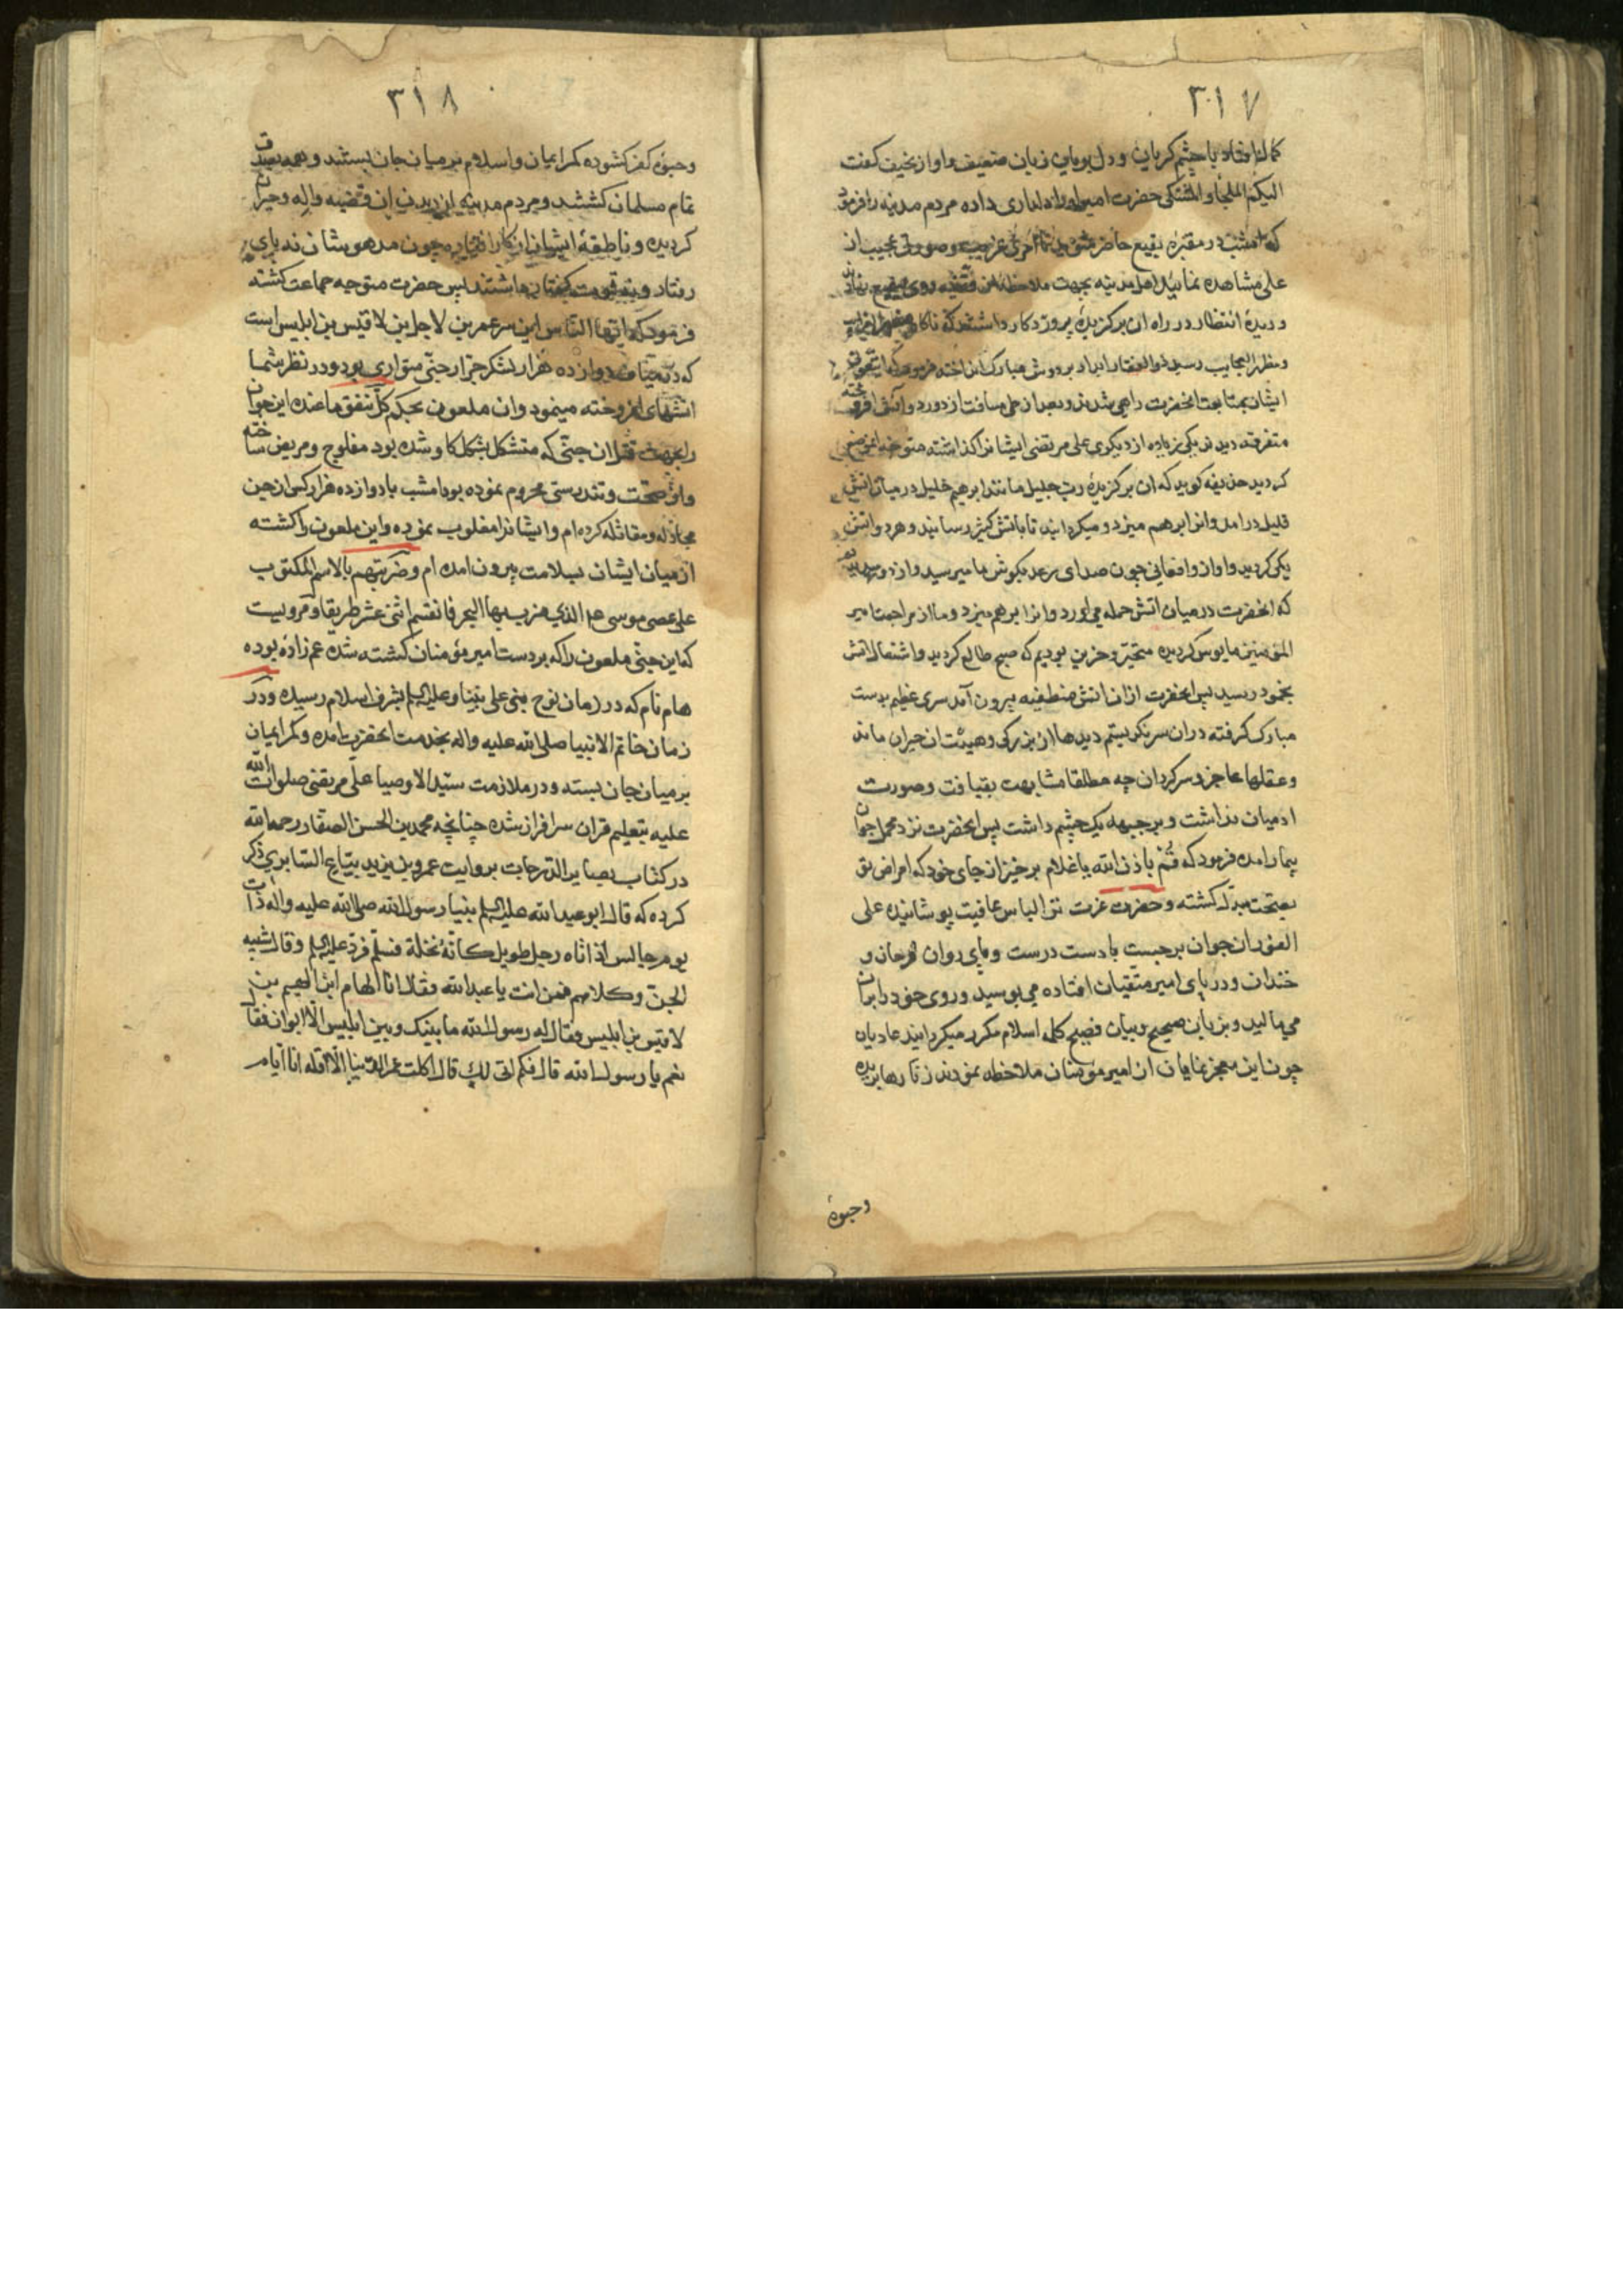 ٣١٧
با چشم گریان و دل بریان زبان ضعیف واواز نخیف کفت
الیکم الملجأ والمشتکی حضرت امیر اورا دلداری داده مردم مدینه را فرمود
که امشب در مقبره بقیع حاضر شوید تا امری غریب وصورتی عجیب از
علی مشاهده نمائید اهل مدینه بجهت ملاحظه آن قضیه روی ببقیع نهادند
ودیده انتظار در راه آن برکزیده پروردکار داشتند که ناکاه
ومظهر العجایب رسید ذوالفقار ابدار بر دوش مبارک انداخته فرمود که
ایشان بمتابعت انحضرت راهی شدند وبعد از طی مسافت از دور دو آتش افروخته
متفرقه دیدند یکی زیاده از دیکری علی مرتضی ایشانرا کذاشته متوجه
کردید حذیفه کوید که ان برکزیده رب جلیل مانند ابرهیم خلیل در میان اتش
قلیل درامد وانرا برهم میزد ومیکردانید تا باتش کثیر رسانید وهر دو اتش
یکی کردید واواز وافغانی چون صدای رعد بکوش ما میرسید واز دور میدیدیم
که انحضرت در میان اتش حمله می اورد وانرا برهم میزد وما از مراجعت امیر
المؤمنین مایوس کردیده متحیر وحزین بودیم که صبح طالع کردید واشتعال اتش
بخمود رسید پس انحضرت ازان اتش منطفیه بیرون آمد سری عظیم بدست
مبارک کرفته دران سر نکریستم دیدها از بزرکی وهیئت ان حیران ماند
وعقلها عاجز وسرکردان چه مطلقا مشابهت بقیافت وصورت
ادمیان نداشت وبر جبهه یک چشم داشت پس انحضرت نزد محمل جوان
بیمار امده فرمود که قُم باذن الله یا غلام برخیز از جای خود که امراض تو
بصحت مبدل کشته وحضرت عزت ترا لباس عافیت پوشانیده علی
الفور ان جوان برجست با دست درست وپای روان فرحان و
خندان ودر پای امیر متقیان افتاده می بوسید وروی خود را بران
می مالید وبزبان صحیح وبیان فصیح کلمه اسلام مکرر میکردانید عادیان
چون این معجز نمایان از امیر مومنان ملاحظه نمودند زنارها بریده
وحبوهٔ
٣١٨
وحبوهٔ کفر کشوده کمر ایمان واسلام بر میان جان بستند وهمه بصدق
تمام مسلمان کشتند ومردم مدینه از دیدن ان قضیه واله وحیران
کردیده وناطقهٔ ایشان از کار افتاده چون مدهوشان نه پای
رفتار ونه قوت کفتار داشتند پس حضرت متوجه جماعت کشته
فرمود که ایها الناس این سر عمر بن لاجل بن لاقیس بن ابلیس است
که دوازده هزار لشکر جرار جنی متواری بود ودر نظر شما
اتشهای افروخته مینمود وان ملعون بحکم کل ینفق ما عنده این جوان
را بجهت قتل ان جنی که متشکل بشکل کاو شده بود مفلوج ومریض ساخته
واز صحت وتندرستی محروم نموده بود امشب با دوازده هزار کس از جن
مجادله ومقاتله کرده ام وایشانرا مغلوب نموده واین ملعون را کشته
از میان ایشان بسلامت بیرون امده ام وضربتهم بالاسم المکتوب
علی عصی موسی هذا الذی ضرب بها البحر فانقسم اثنی عشر طریقا ومرویست
که این جنی ملعون را که بر دست امیر مؤمنان کشته شده عم زاده بوده
هام نام که در زمان نوح نبی علی نبینا وعلیه السلم بشرف اسلام رسیده ودر
زمان خاتم الانبیا صلی الله علیه واله بخدمت انحضرت امده وکمر ایمان
بر میان جان بسته ودر ملازمت سید الاوصیا علی مرتضی صلوات الله
علیه بتعلیم قران سرافراز شده چنانچه محمد بن الحسن الصفار رحمه الله
در کتاب بصایر الدرجات بروایت عمرو بن یزید بیّاع السّابری ذکر
کرده که قال ابو عبدالله علیه السلم بینا رسول الله صلی الله علیه واله ذات
یوم جالس اذ اتاه رجل طویل کانّه نخلة فسلّم فردّ علیه السلم وقال شبیه
الجنّ وکلامهم فمن انت یا عبدالله فقال انا الهام ابن الهیم بن
لاقیس بن ابلیس فقال له رسول الله ما بینک وبین ابلیس الّا ابوان فقال
نعم یا رسول الله قال فکم اتی لک قال اکلت عمر الدنیا الّا اقله انا ایام